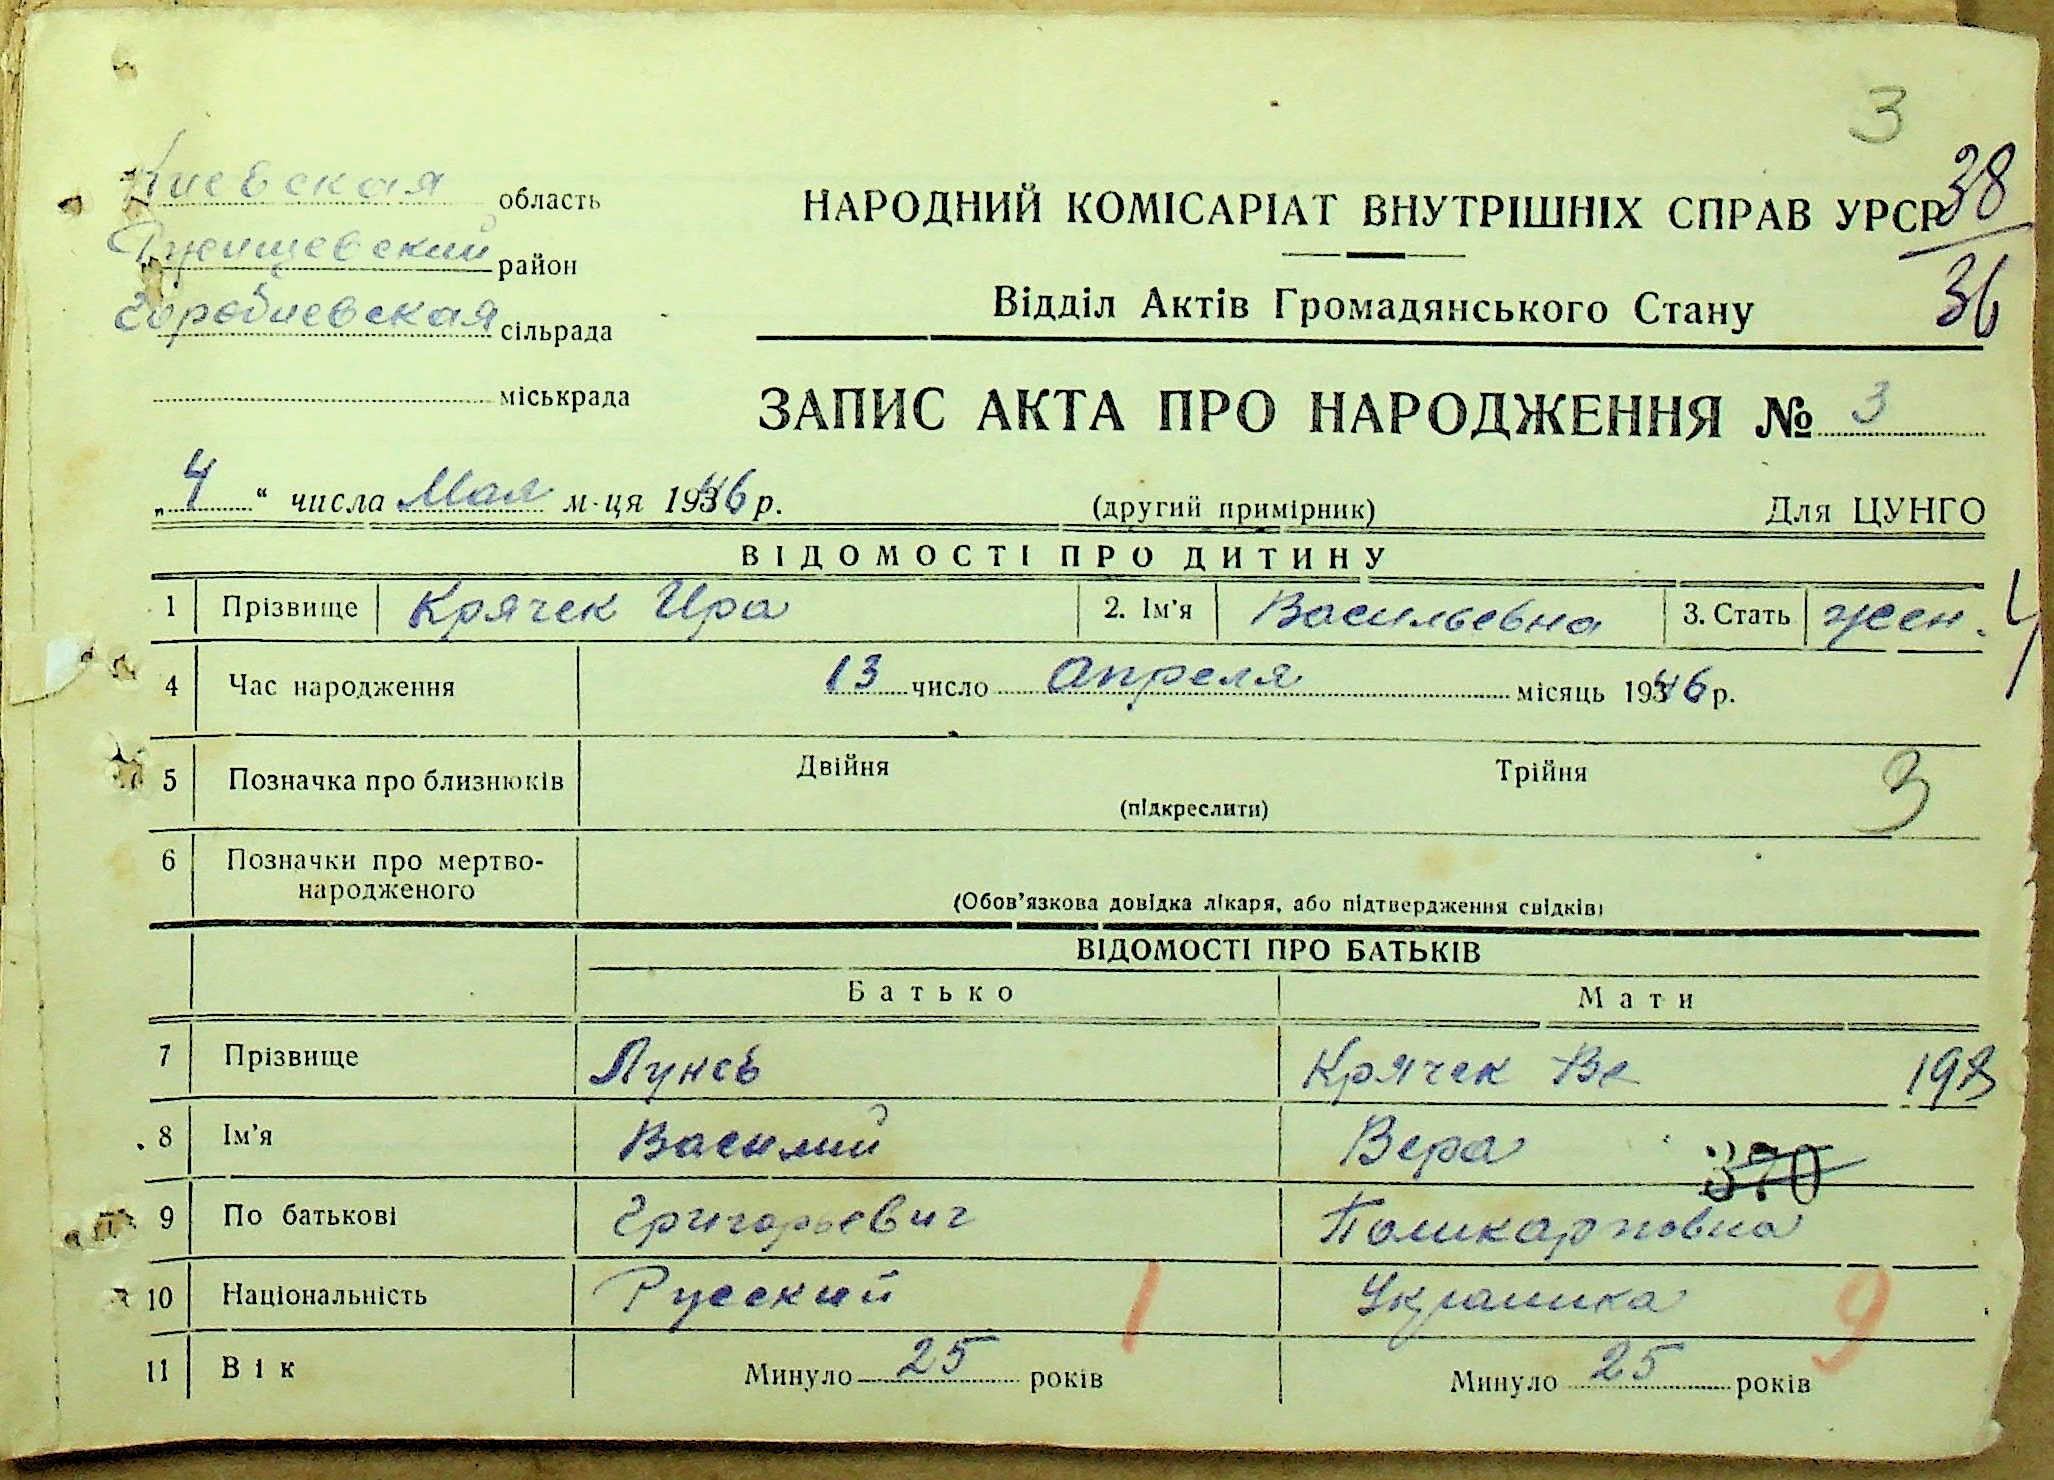 3
38
36
Киевская область
Ржищевский район
сільрада
міськрада
НАРОДНИЙ КОМІСАРІАТ ВНУТРІШНІХ СПРАВ УРСР
Відділ Актів Громадянського Стану
ЗАПИС АКТА ПРО НАРОДЖЕННЯ № 3
„4“ числа Мая м-ця 1946 р. (другий примірник) Для ЦУНГО
ВІДОМОСТІ ПРО ДИТИНУ
1 Прізвище Крячек Ира 2. Ім'я Васильевна 3. Стать жен. 4
4 Час народження 13 число Апреля місяць 1946 р.
5 Позначка про близнюків Двійня Трійня 3
(підкреслити)
6 Позначки про мертво-
народженого
(Обов'язкова довідка лікаря, або підтвердження свідків)
ВІДОМОСТІ ПРО БАТЬКІВ
Батько Мати
7 Прізвище Лунев Крячек Ве 193
8 Ім'я Василий Вера
370
9 По батькові Григорьевич Поликарповна
10 Національність Русский 1 Украинка 9
11 Вік Минуло 25 років Минуло 25 років